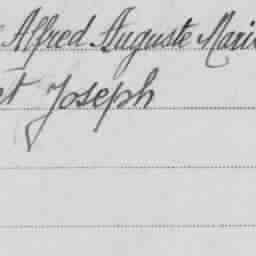 Alfred Auguste Marie
et Joseph